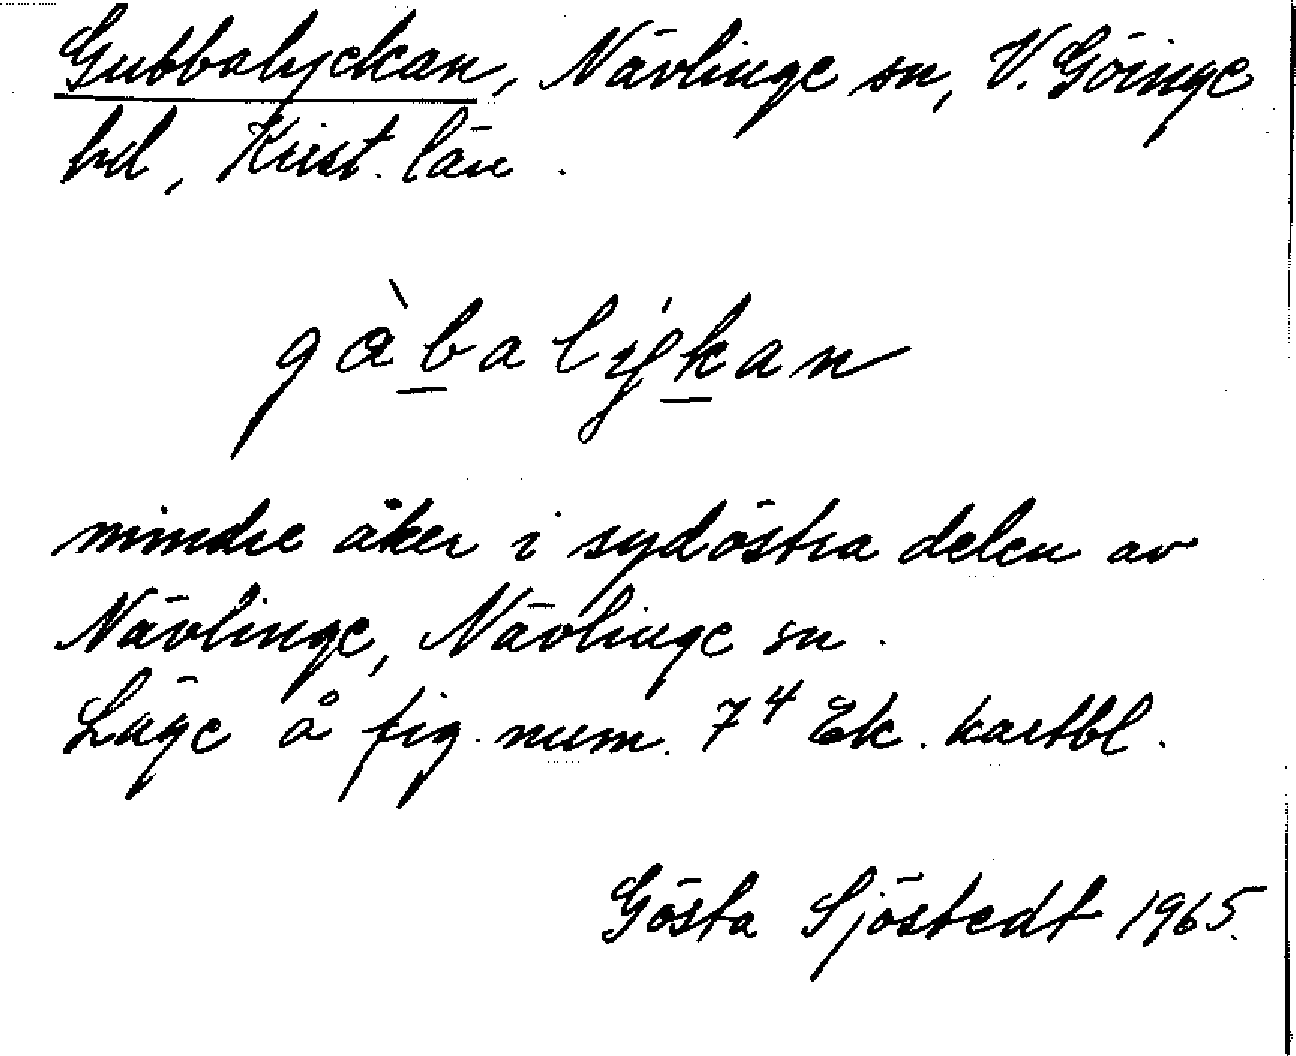 Gubbalyckan, Nävlinge sn, V. Göinge
hd, Krist. län.
gàbalýkan
mindre åker i sydöstra delen av
Nävlinge, Nävlinge sn.
Läge å fig. num. 7⁴ Ek. kartbl.
Gösta Sjöstedt 1965.